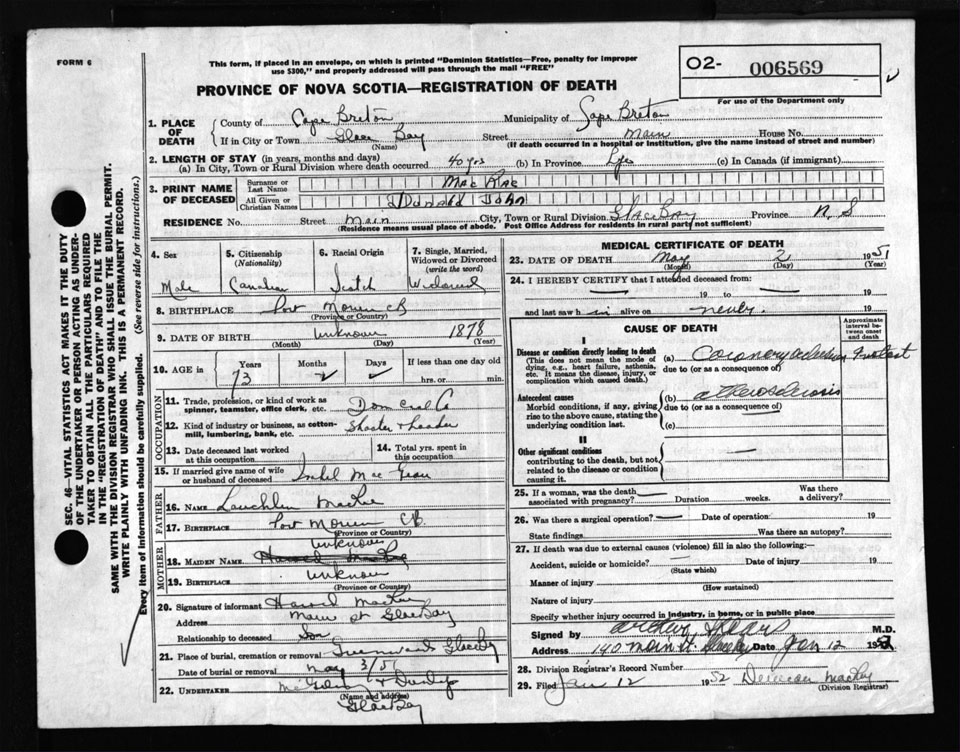 FORM 6
This form, if placed in an envelope, on which is printed "Dominion Statistics—Free, penalty for improper
use $300," and properly addressed will pass through the mail "FREE"
O2- 006569
For use of the Department only
PROVINCE OF NOVA SCOTIA—REGISTRATION OF DEATH
1. PLACE OF DEATH
County of Cape Breton Municipality of Cape Breton
If in City or Town Glace Bay Street Main House No.
(Name) (If death occurred in a hospital or institution, give the name instead of street and number)
2. LENGTH OF STAY (in years, months and days)
(a) In City, Town or Rural Division where death occurred 40 yrs (b) In Province Life (c) In Canada (if immigrant)
3. PRINT NAME OF DECEASED
Surname or Last Name Mac Rae
All Given or Christian Names Donald John
RESIDENCE No. Street Main City, Town or Rural Division Glace Bay Province N. S
(Residence means usual place of abode. Post Office Address for residents in rural parts not sufficient)
4. Sex Male
5. Citizenship (Nationality) Canadian
6. Racial Origin Scotch
7. Single, Married, Widowed or Divorced (write the word) Widowed
8. BIRTHPLACE Port Morien CB
(Province or Country)
9. DATE OF BIRTH Unknown 1878
(Month) (Day) (Year)
10. AGE in Years 73 Months Days If less than one day old
hrs. or min.
OCCUPATION
11. Trade, profession, or kind of work as spinner, teamster, office clerk, etc. Dom Coal Co
12. Kind of industry or business, as cotton-mill, lumbering, bank, etc. Shooter & Loader
13. Date deceased last worked at this occupation
14. Total yrs. spent in this occupation
15. If married give name of wife or husband of deceased Mac
FATHER
16. Name Lauchlin MacRae
17. BIRTHPLACE Port Morien CB
(Province or Country)
MOTHER
Unknown
18. MAIDEN NAME
19. BIRTHPLACE Unknown
(Province or Country)
20. Signature of informant MacRae
Address Main st Glace Bay
Relationship to deceased Son
21. Place of burial, cremation or removal Greenwood Glace Bay
Date of burial or removal May 3/51
22. UNDERTAKER
(Name and address)
Glace Bay
MEDICAL CERTIFICATE OF DEATH
23. DATE OF DEATH May 2 1951
(Month) (Day) (Year)
24. I HEREBY CERTIFY that I attended deceased from:
— 19 to — 19
and last saw h im alive on never.
CAUSE OF DEATH
Approximate interval between onset and death
I
Disease or condition directly leading to death
(This does not mean the mode of dying, e.g., heart failure, asthenia, etc. It means the disease, injury, or complication which caused death.)
(a) Coronary occlusion
due to (or as a consequence of)
Antecedent causes
Morbid conditions, if any, giving rise to the above cause, stating the underlying condition last.
(b) atherosclerosis
due to (or as a consequence of)
(c)
II
Other significant conditions
contributing to the death, but not related to the disease or condition causing it.
25. If a woman, was the death associated with pregnancy? Duration weeks. Was there a delivery?
26. Was there a surgical operation? Date of operation 19
State findings Was there an autopsy?
27. If death was due to external causes (violence) fill in also the following:—
Accident, suicide or homicide? Date of injury 19
(State which)
Manner of injury
(How sustained)
Nature of injury
Specify whether injury occurred in industry, in home, or in public place
Signed by M.D.
Address 140 Main St. Glace Bay Date Jan 12 1952
28. Division Registrar's Record Number
29. Filed Jan 12 1952 Duncan
(Division Registrar)
SEC. 46—VITAL STATISTICS ACT MAKES IT THE DUTY
OF THE UNDERTAKER OR PERSON ACTING AS UNDER-
TAKER TO OBTAIN ALL THE PARTICULARS REQUIRED
IN THE "REGISTRATION OF DEATH" AND TO FILE THE
SAME WITH THE DIVISION REGISTRAR WHO SHALL ISSUE THE BURIAL PERMIT.
WRITE PLAINLY WITH UNFADING INK. THIS IS A PERMANENT RECORD.
Every item of information should be carefully supplied. (See reverse side for instructions.)